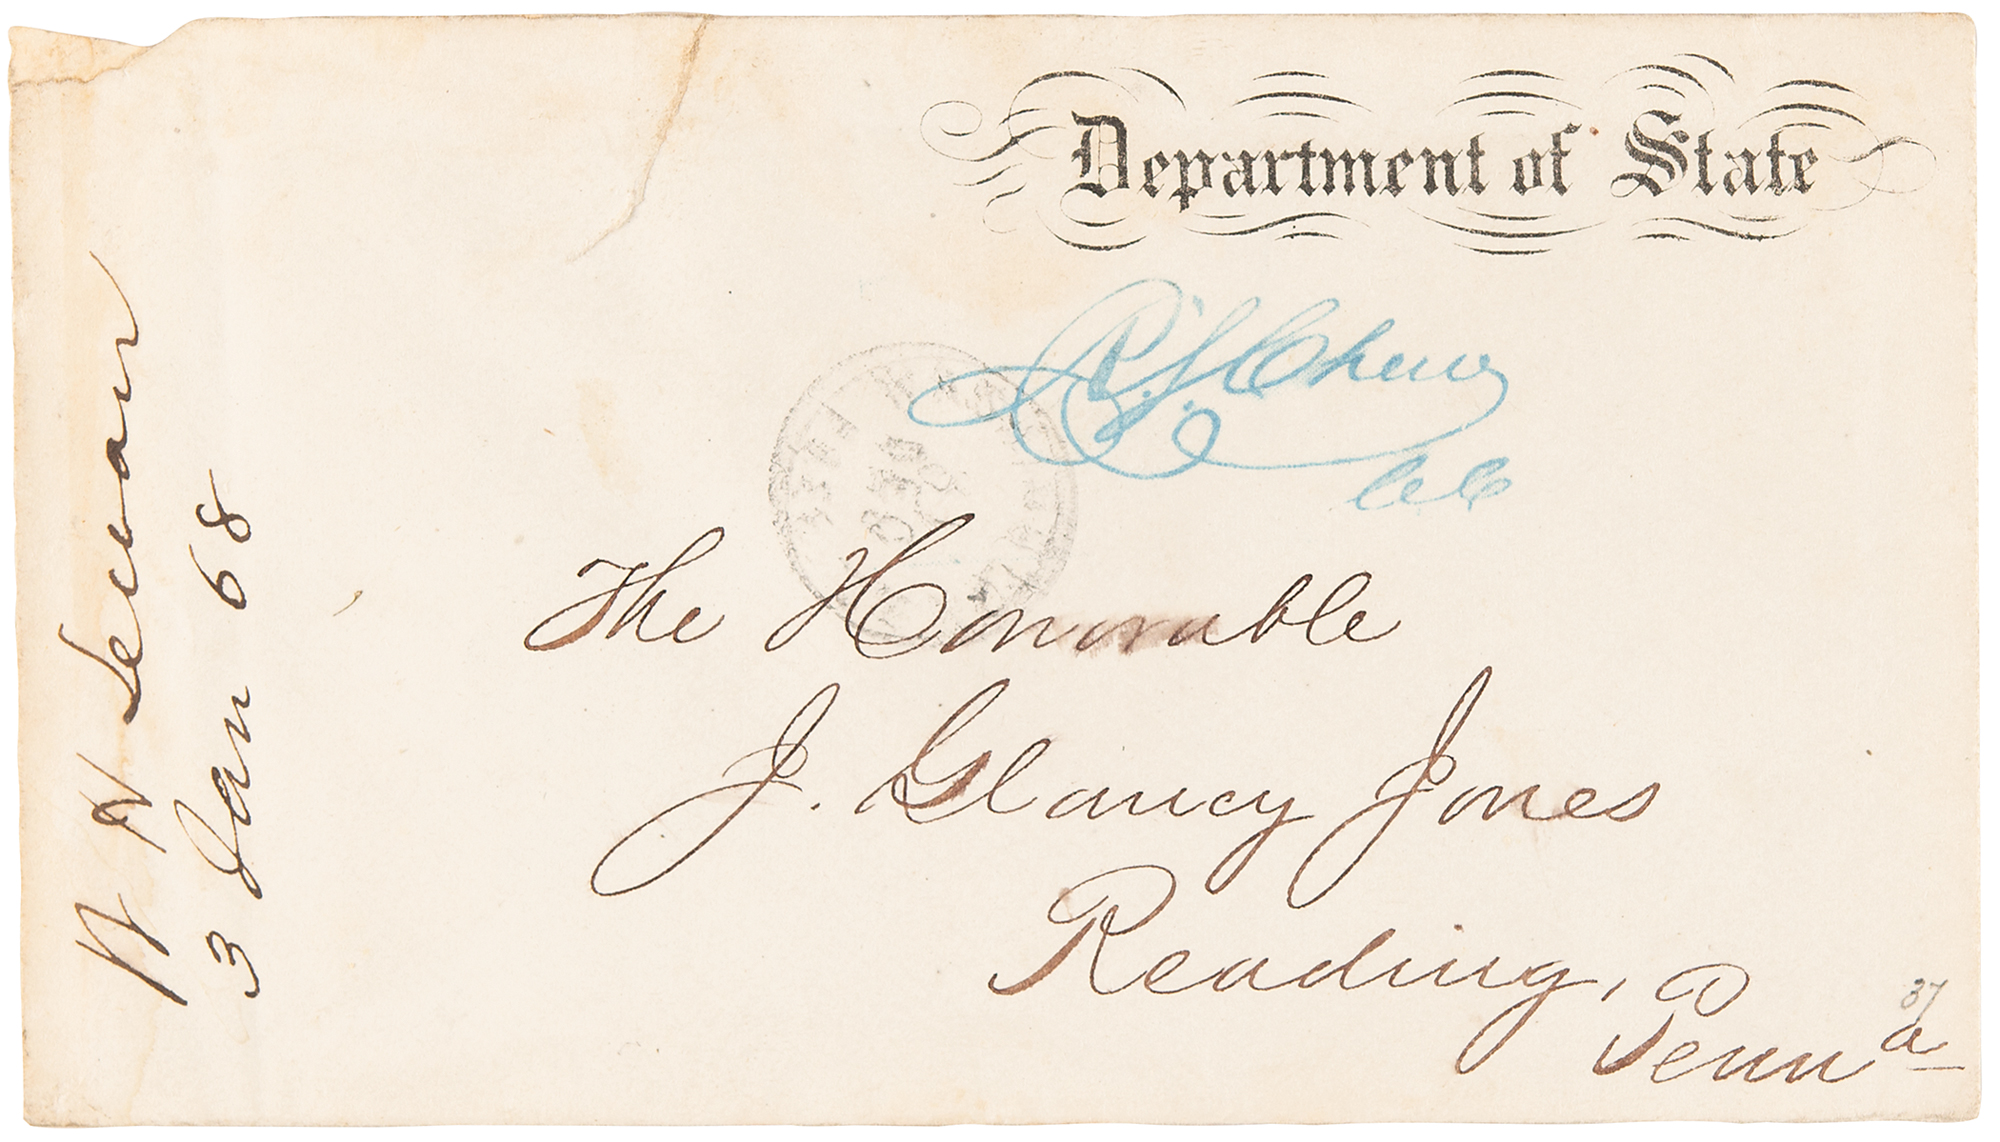 Department of State
R. S. Chew
CC
The Honorable
J. Glancy Jones
Reading,
Penn a
37
W H Sewar
3 Jan 68